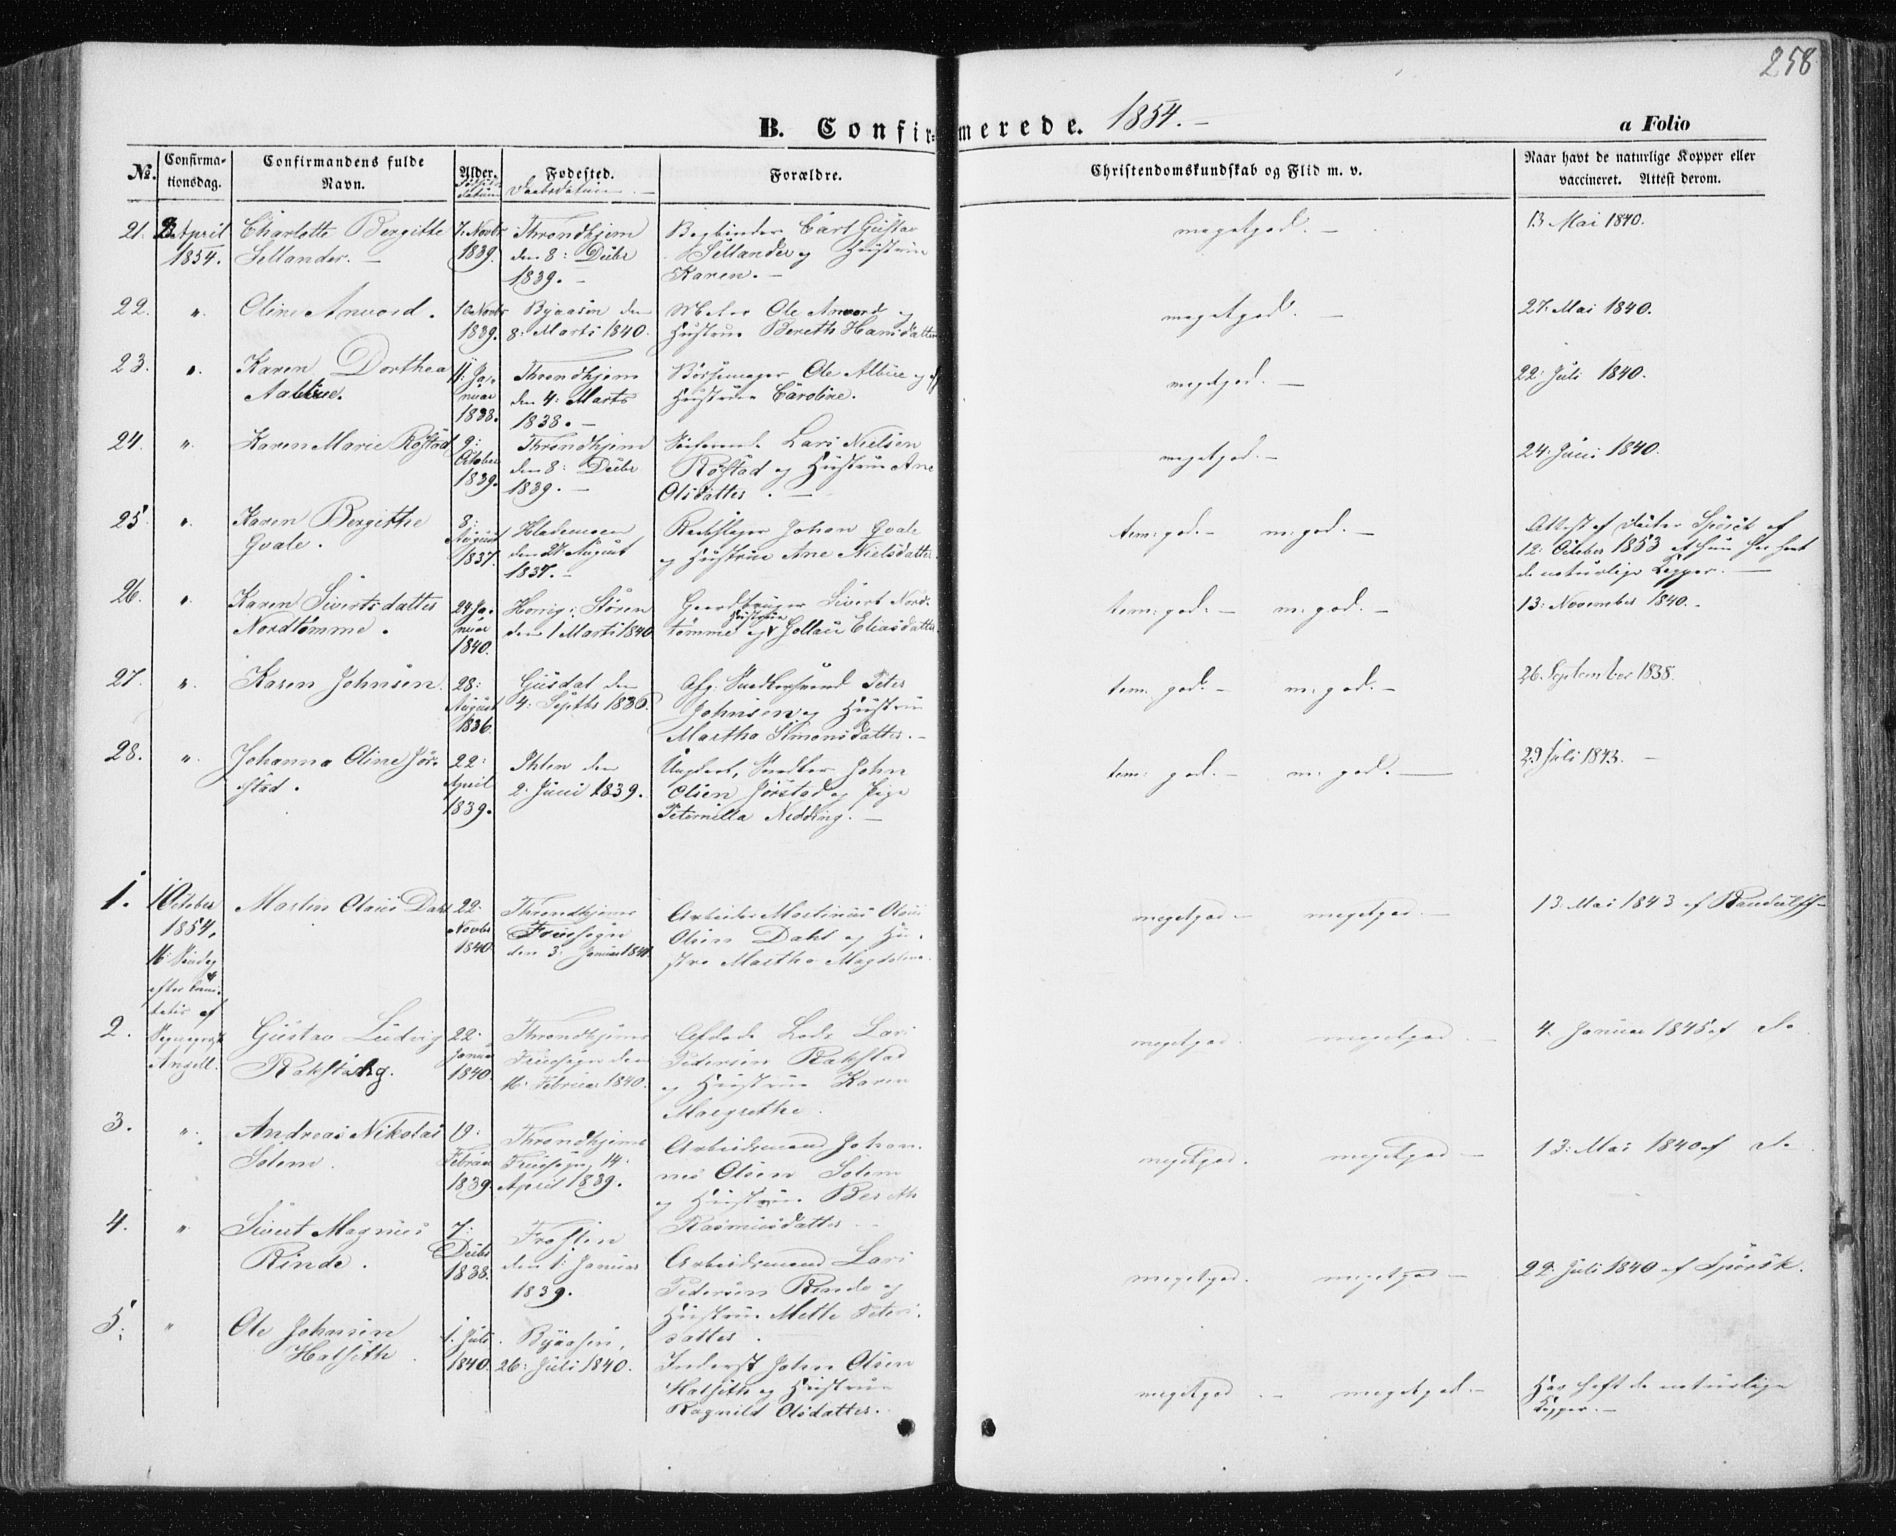 258
B. Confirmerede. 1854.-
a Folio
No.
Confirma-
tionsdag.
Confirmandens fulde
Navn.
Alder.
Fødested.
Daabsdatum.
Forældre.
Christendomskundskab og Flid m. v.
Naar havt de naturlige Kopper eller
vaccineret. Attest derom.
21. April
1854.
Charlotte Bergitte
Sellander. -
7. Novbr
1839.
Throndhjem
den 8: Decbr
1839. -
Bogbinder Carl Gustav
Sellander og Hustrue
Karen. -
megetgod. -
13 Mai 1840.
22. "
Oline Anvord.
10 Novbr
1839.
Byaasen den
8: Marts 1840.
Ole Anvord og
Hustrue Bereth Hansdatter
megetgod. -
27: Mai 1840.
23. "
Karen Dorthea
Aalbue.
11: Ja-
nuar
1838.
Throndhjem
den 4: Marts
1838. -
Bøssemager Ole Albue og
Hustrue Caroline.
megetgod. -
22: Juli 1840.
24. "
Karen Marie Røstad
9:
October
1839.
Throndhjem
den 8: Decbr
1839. -
Lars Nielsen
Røstad og Hustrue Ane
Olsdatter. -
megetgod. -
24: Juni 1840.
25. "
Karen Bergithe
Qvale.
8:
August
1837.
Hlademoen
den 27 August
1837. -
Rebslager Johan Qvale
og Hustrue Ane Nielsdatter
tem: god. - m: god. -
Attest af
12: October 1853 at hun har havt
de naturlige Kopper. -
26. "
Karen Sivertsdatter
Nordtømme.
24 Ja-
nuar
1840.
Horrig i Støren
den 1 Marts 1840
Gaardbruger Sivert Nord-
tømme og Hustrue Gollau Eliasdatter
tem: god. - m: god. -
13: November 1840. -
27. "
Karen Johnsen.
28:
August
1836.
Gusdal den
4: Septbr 1836.
Afg: Snedkersvend Peter
Johnsen og Hustrue
Martha Simonsdatter. -
tem: god. - m: god. -
26. September 1838.
28. "
Johanna Oline Jør-
stad.
22:
April
1839.
Ihlen den
2: Juni 1839.
Ungkarl, Snedker John
Olsen Jørstad og Pige
Peternilla Nedding. -
tem: god. - m: god. -
29 Juli 1843. -
1. 1 October
1854.
16: Søndag
efter Trini-
tatis af
Sognepræst
Angell.
Martin Olaus Dahl
22:
Novbr
1840
Throndhjems
Fruesogn
den 3: Januar 1841
Arbeider Martinus Olaus
Olsen Dahl og Hu-
stru Martha Magdalena.
megetgod - megetgod. -
13: Mai 1843 af
2.
Gustav Ludvig
Rakstang.
22:
Januar
1840
Throndhjems
Fruesogn den
16: Februar 1840.
Afdøde Lods Lars
Pedersen Rakstad
og Hustrue Karen
Margrethe.
megetgod. megetgod. -
4. Januar 1845 af do
3. "
Andreas Nikolai
Solem.
19:
Februar
1839
Throndhjems
Fruesogn 14:
April 1839.
Arbeidsmand Johan-
nes Olsen Solem
og Hustrue Bereth
Rasmusdatter -
megetgod. megetgod -
13: Mai 1840 af do
4. "
Sivert Magnus
Rinde.
7:
Decbr
1838.
Frosten
den 1: Januar
1839.
Arbeidsmand Lars
Pedersen Rinde og
Hustrue Mette Peters-
datter.
megetgod. megetgod -
22: Juli 1840 af
5: "
Ole Johnsen
Halseth.
1. Juli
1840.
Byaasen,
26: Juli 1840.
Inderst John Olsen
Halseth og Hustrue
Ragnild Olsdatter.
megetgod. - megetgod. -
Har haft de naturlige
Kopper. -